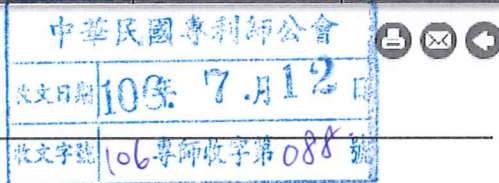 中華民國專利師公會
收文日期 106年 7月12日
收文字號 106專師收字第088號